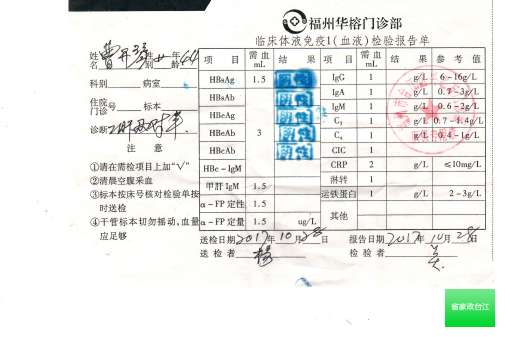 福州华榕门诊部
临床体液免疫1(血液)检验报告单
姓名 性别 女 年龄 44
科别 病室
住院门诊 号 标本
诊断
注意
①请在需检项目上加"√"
②清晨空腹采血
③标本按床号核对检验单按时送检
④干管标本切勿摇动,血量应足够
项目 需血mL 结果 项目 需血mL 结果 参考值
HBsAg 1.5 阴性 IgG 1 g/L 6-16g/L
HBsAb 阴性 IgA 1 g/L 0.7-3g/L
HBeAg 阴性 IgM 1 g/L 0.6-2g/L
HBeAb 3 阴性 C₃ 1 g/L 0.7-1.4g/L
HBcAb 阴性 C₄ 1 g/L 0.4-1g/L
CIC 1
HBc-IgM CRP 2 g/L ≤10mg/L
甲肝IgM 1.5 淋转 1
α-FP定性 1.5 运铁蛋白 1 g/L 2-3g/L
α-FP定量 1.5 ug/L 其他
送检日期 2017年10月28日 报告日期 2017年10月28日
送检者 检验者
省家政台江